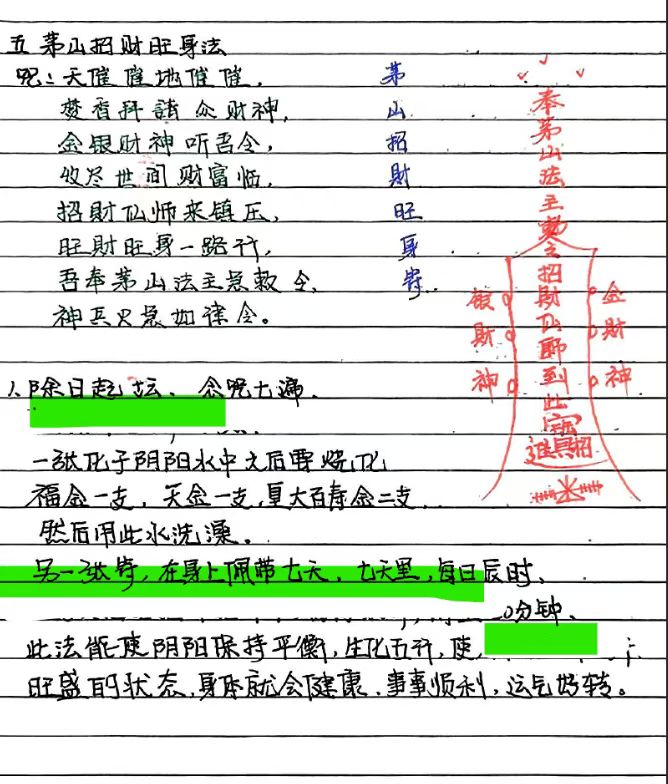 五 茅山招财旺身法
咒：天催催地催催，
焚香拜請众财神，
金银财神听吾令，
收尽世间财富临，
招財仙师来镇压，
旺財旺身一路行，
吾奉茅山法主急敕令，
神兵火急如律令。
茅山招財旺身符
奉茅山法主敕之招財仙師到此
進寶招
银財神
金財神
1、除日起坛、念咒七遍．
一张化于阴阳水中之后要烧化
福金一支，天金一支，夏大百寿金二支．
然后用此水洗澡。
另一张符，在身上佩带七天，七天里，每日辰时、
0分钟、
此法能使阴阳保持平衡，生化五行，使
旺盛的状态，身体就会健康．事事顺利，运气好转。